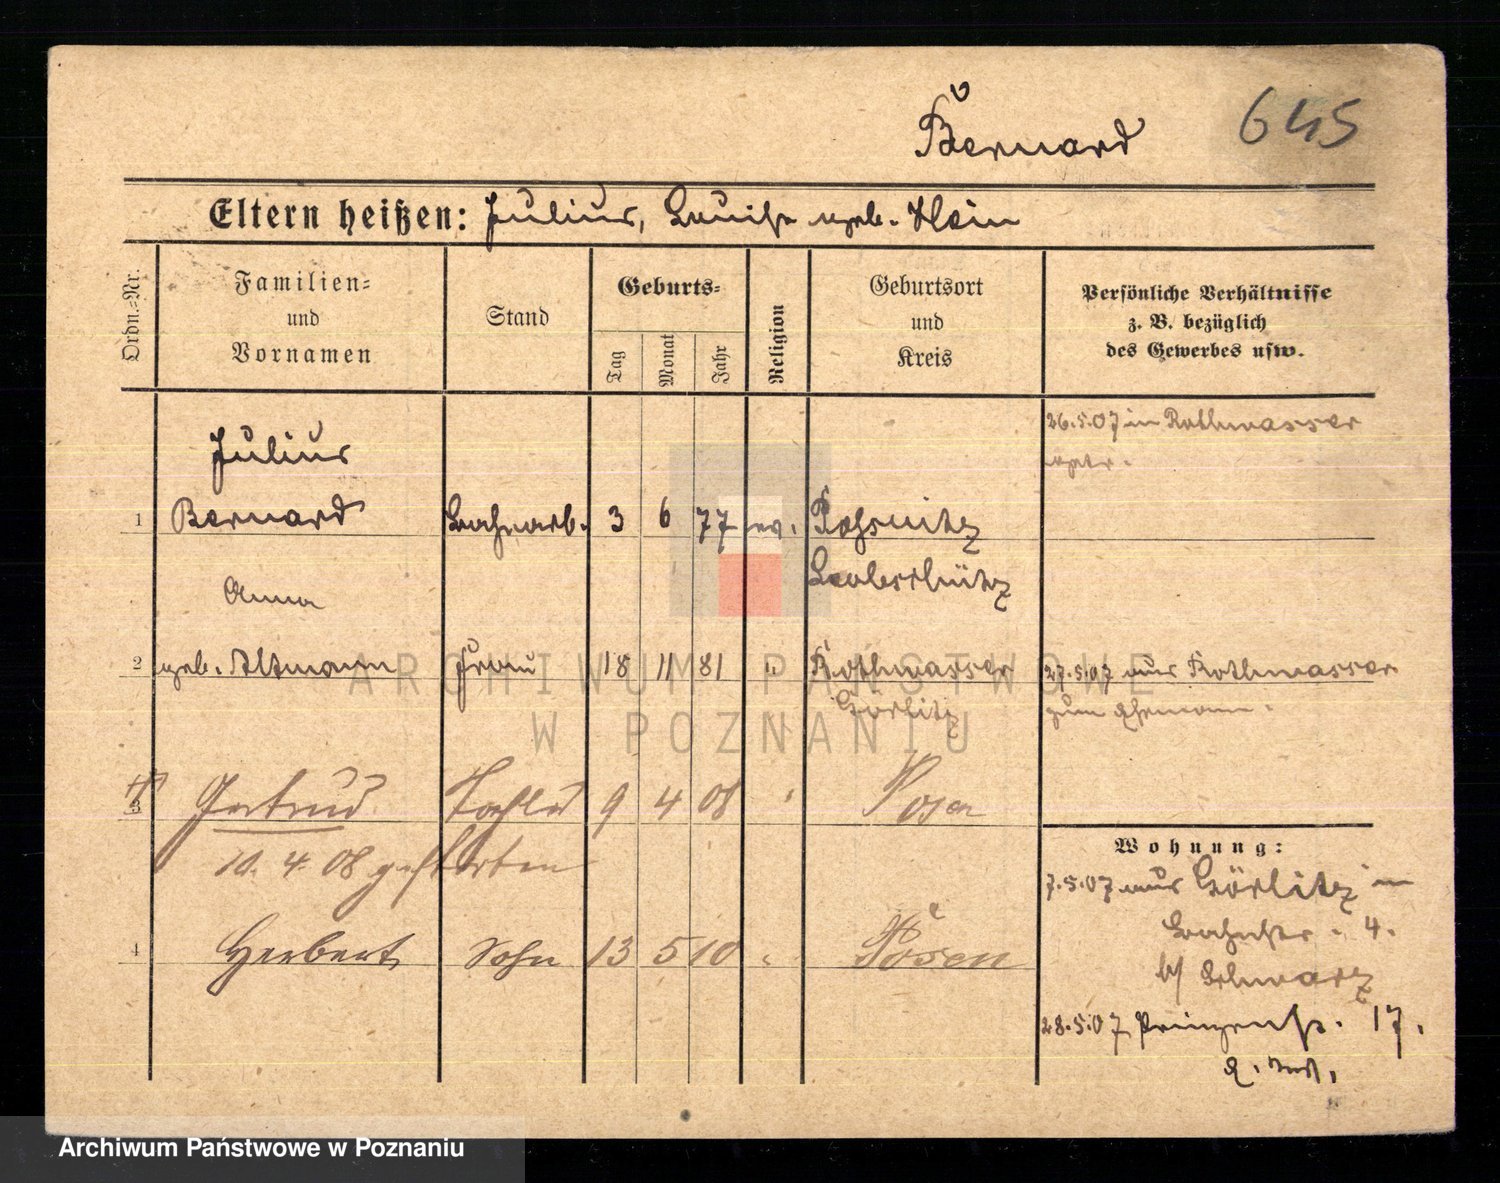 Bernard
645
Eltern heißen: Julius, Louise geb. Hein
Ordn.=Nr.
Familien=
und
Vornamen
Stand
Geburts=
Tag
Monat
Jahr
Religion
Geburtsort
und
Kreis
Persönliche Verhältnisse
z. B. bezüglich
des Gewerbes usw.
26.5.07 in Rothwasser
getr.
Julius
1 Bernard Bahnarb. 3 6 77 ev. Rösnitz
Leobschütz
Anna
2 geb. Altmann Frau 18 11 81 " Rothwasser
Görlitz
27.5.07 aus Rothwasser
zum Ehemann.
3 Gertrud Tochter 9 4 08 " Posen
10. 4. 08 gestorben
4 Herbert Sohn 13 5 10 " Posen
Wohnung:
7.5.07 aus Görlitz in
Bahnhstr. 4.
b/ Schwarz
28.5.07 Prinzenstr. 17.
ARCHIWUM PAŃSTWOWE
W POZNANIU
Archiwum Państwowe w Poznaniu